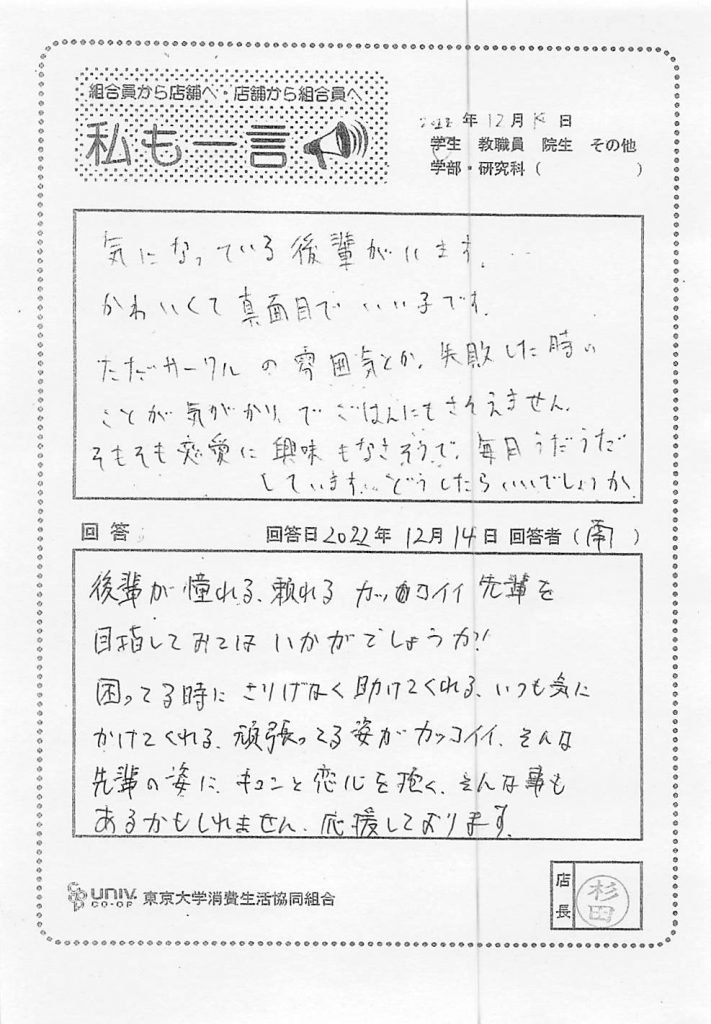 組合員から店舗へ・店舗から組合員へ
私も一言
2022年12月 日
学生 教職員 院生 その他
学部・研究科( )
気になっている後輩がいます。…
かわいくて真面目でいい子です。
ただサークルの雰囲気とか、失敗した時の
ことが気がかりでごはんにもさそえません。
そもそも恋愛に興味もなさそうで、毎日うだうだ
しています…どうしたらいいでしょうか
回答 回答日2022年12月14日 回答者(南)
後輩が憧れる、頼れるカッコイイ先輩を
目指してみてはいかがでしょうか?!
困ってる時にさりげなく助けてくれる、いつも気に
かけてくれる、頑張ってる姿がカッコイイ、そんな
先輩の姿に、キュンと恋心を抱く、そんな事も
あるかもしれません。応援しております。
UNIV. CO-OP 東京大学消費生活協同組合
店長 杉田